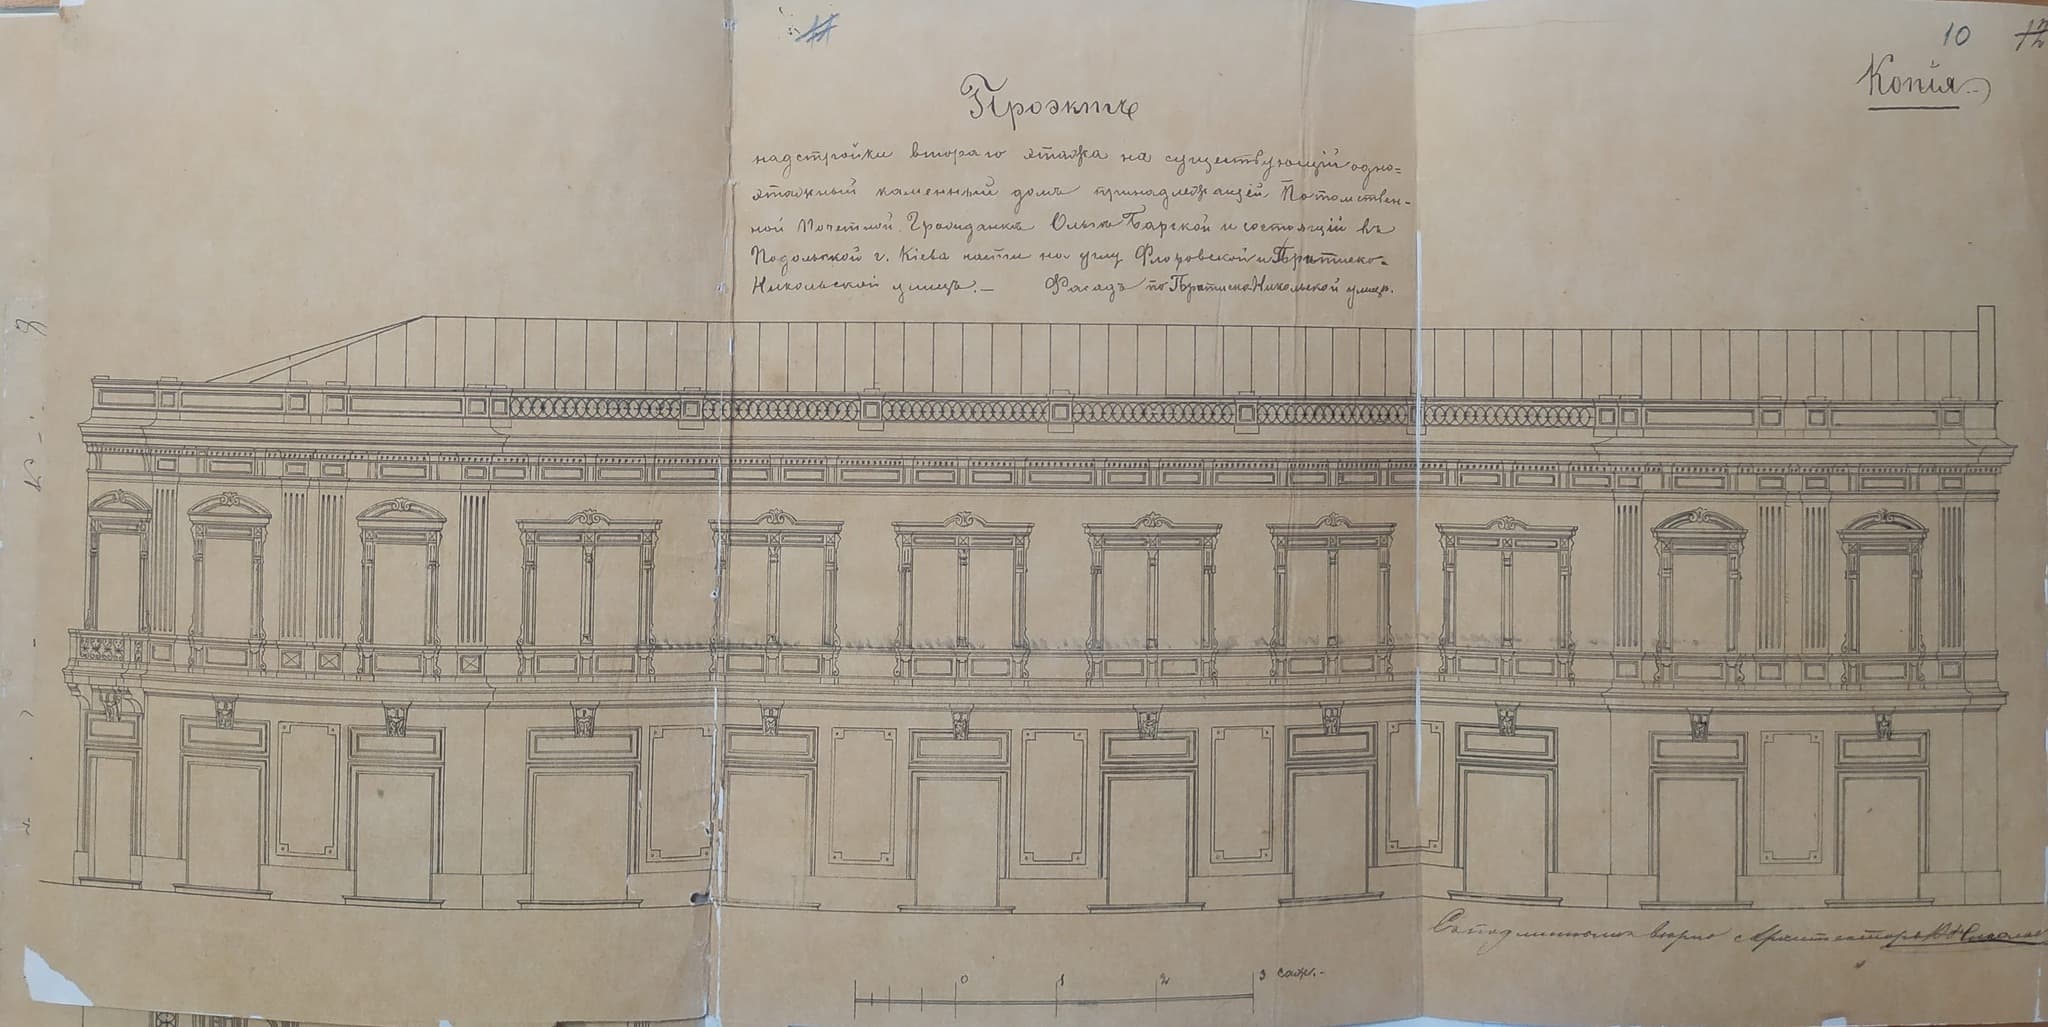 10
Копія
Проэктъ
надстройки втораго этажа на существующій одно=
этажный каменный домъ принадлежащей Потомствен-
ной Почетной Гражданкѣ Ольгѣ Барской и состоящій въ
Подольской ч. Кіева части на углу Флоровской и Братско-
Никольской улицъ.— Фасадъ по Братско Никольской улицѣ.
Съ подлиннымъ вѣрно Архитекторъ
0 1 2 3 саж.